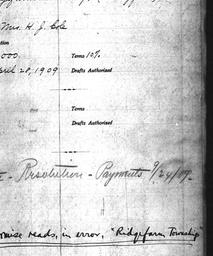 Mrs. H. J. Cole
tion
000 Terms 10%
April 28, 1909 Drafts Authorized
Terms
Drafts Authorized
Resolution - Payments 9/24/09.
omise reads, in error, "Ridgefarm Township"